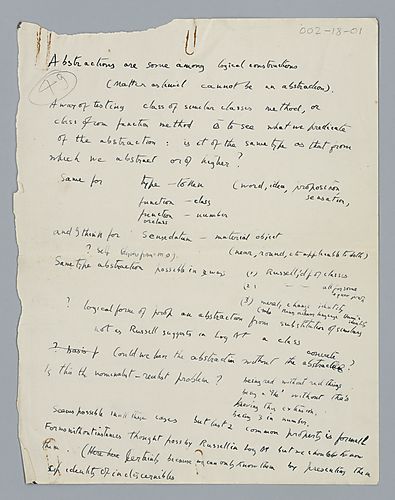 002-18-01
49
Abstractions are some among logical constructions
(Matter as hard cannot be an abstraction).
A way of testing class of similar classes method, or
class from function method is to see what we predicate
of the abstraction: is it of the same type as that from
which we abstract or of higher?
Same for type - token (word, idea, proposition
function - class sensation,
function - number
and I think for sensedatum - material object
(near, round, etc applicable to both)
Same type abstraction possible in 2 ways (1) Russell's df of classes
(2)
(3) merely change identity
? Logical form of prop an abstraction from substitution of similars
not as Russell suggests in Log At a class
? Could we have the abstraction without the concrete?
Is this the nominalist - realist problem? being red without red things
being a 'the' without this
having this extension.
being 3 in number.
Seems possible in all these cases but last 2 common property is formal
Forms without instances thought poss by Russell in Log At but we should to now
them. (Here have certainly because we can only know them by presenting them
of identity of indiscernibles